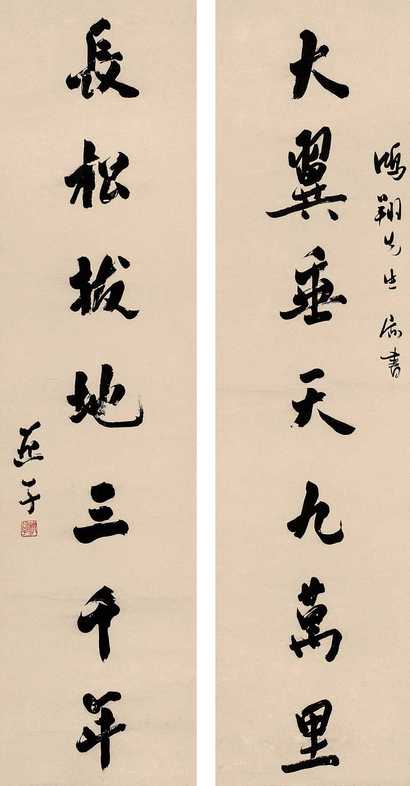 鴻翔先生属書
大翼垂天九萬里
長松拔地三千年
燕子